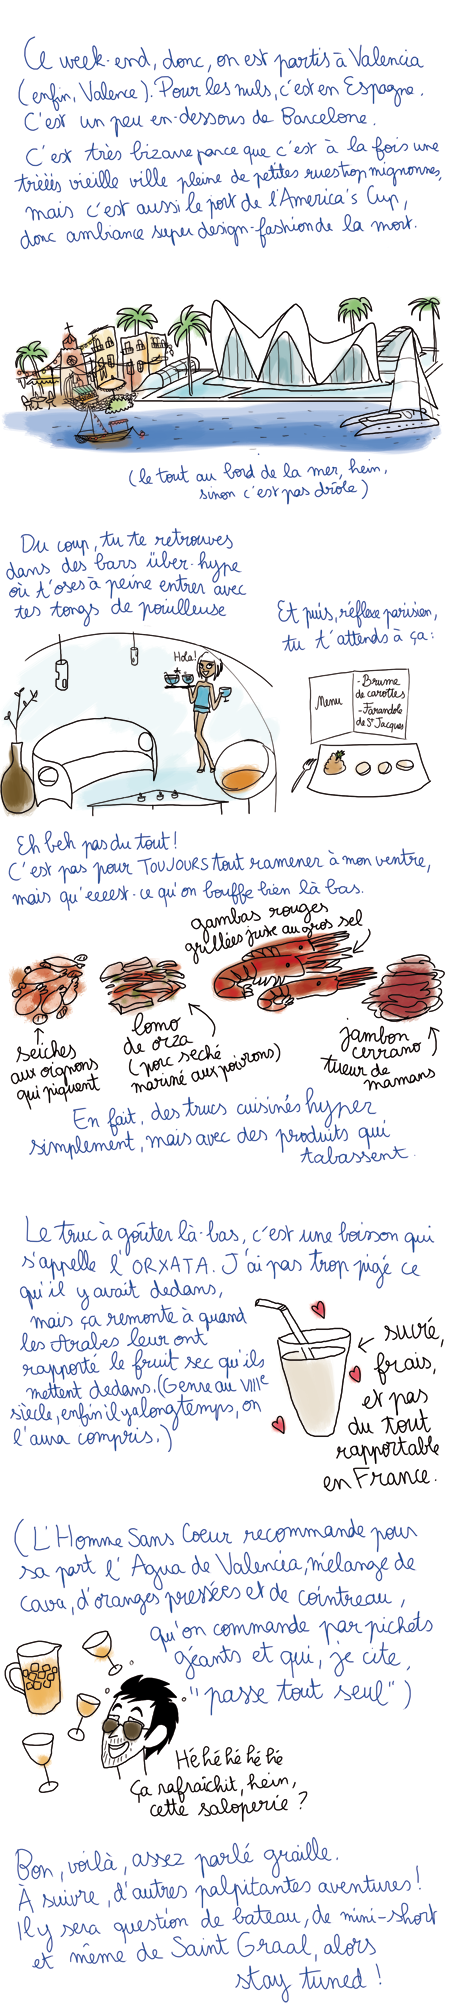 Ce week-end, donc, on est partis à Valencia
(enfin, Valence). Pour les nuls, c'est en Espagne.
C'est un peu en-dessous de Barcelone.
C'est très bizarre parce que c'est à la fois une
trèèès vieille ville pleine de petites rues trop mignonnes,
mais c'est aussi le port de l'America's Cup,
donc ambiance super design-fashion de la mort.
(le tout au bord de la mer, hein,
sinon c'est pas drôle)
Du coup, tu te retrouves
dans des bars über-hype
où t'oses à peine entrer avec
tes tongs de pouilleuse
Hola!
Et puis, réflexe parisien,
tu t'attends à ça :
Menu
- Brume
de carottes
- Farandole
de St Jacques
Eh beh pas du tout !
C'est pas pour TOUJOURS tout ramener à mon ventre,
mais qu'eeeest-ce qu'on bouffe bien là bas.
gambas rouges
grillées juste au gros sel
seiches
aux oignons
qui piquent
lomo
de orza
(porc séché
mariné aux poivrons)
jambon
cerrano
tueur de
mamans
En fait, des trucs cuisinés hyper
simplement, mais avec des produits qui
tabassent.
Le truc à goûter là-bas, c'est une boisson qui
s'appelle l'ORXATA. J'ai pas trop pigé ce
qu'il y avait dedans,
mais ça remonte à quand
les Arabes leur ont
rapporté le fruit sec qu'ils
mettent dedans. (Genre au VIIIe
siècle, enfin il y a longtemps, on
l'aura compris.)
sucré,
frais,
et pas
du tout
rapportable
en France.
(L'Homme Sans Coeur recommande pour
sa part l'Agua de Valencia, mélange de
cava, d'oranges pressées et de cointreau,
qu'on commande par pichets
géants et qui, je cite,
"passe tout seul")
Hé hé hé hé hé
Ça rafraîchit, hein,
cette saloperie ?
Bon, voilà, assez parlé graille.
À suivre, d'autres palpitantes aventures !
Il y sera question de bateau, de mini-short
et même de Saint Graal, alors
stay tuned !